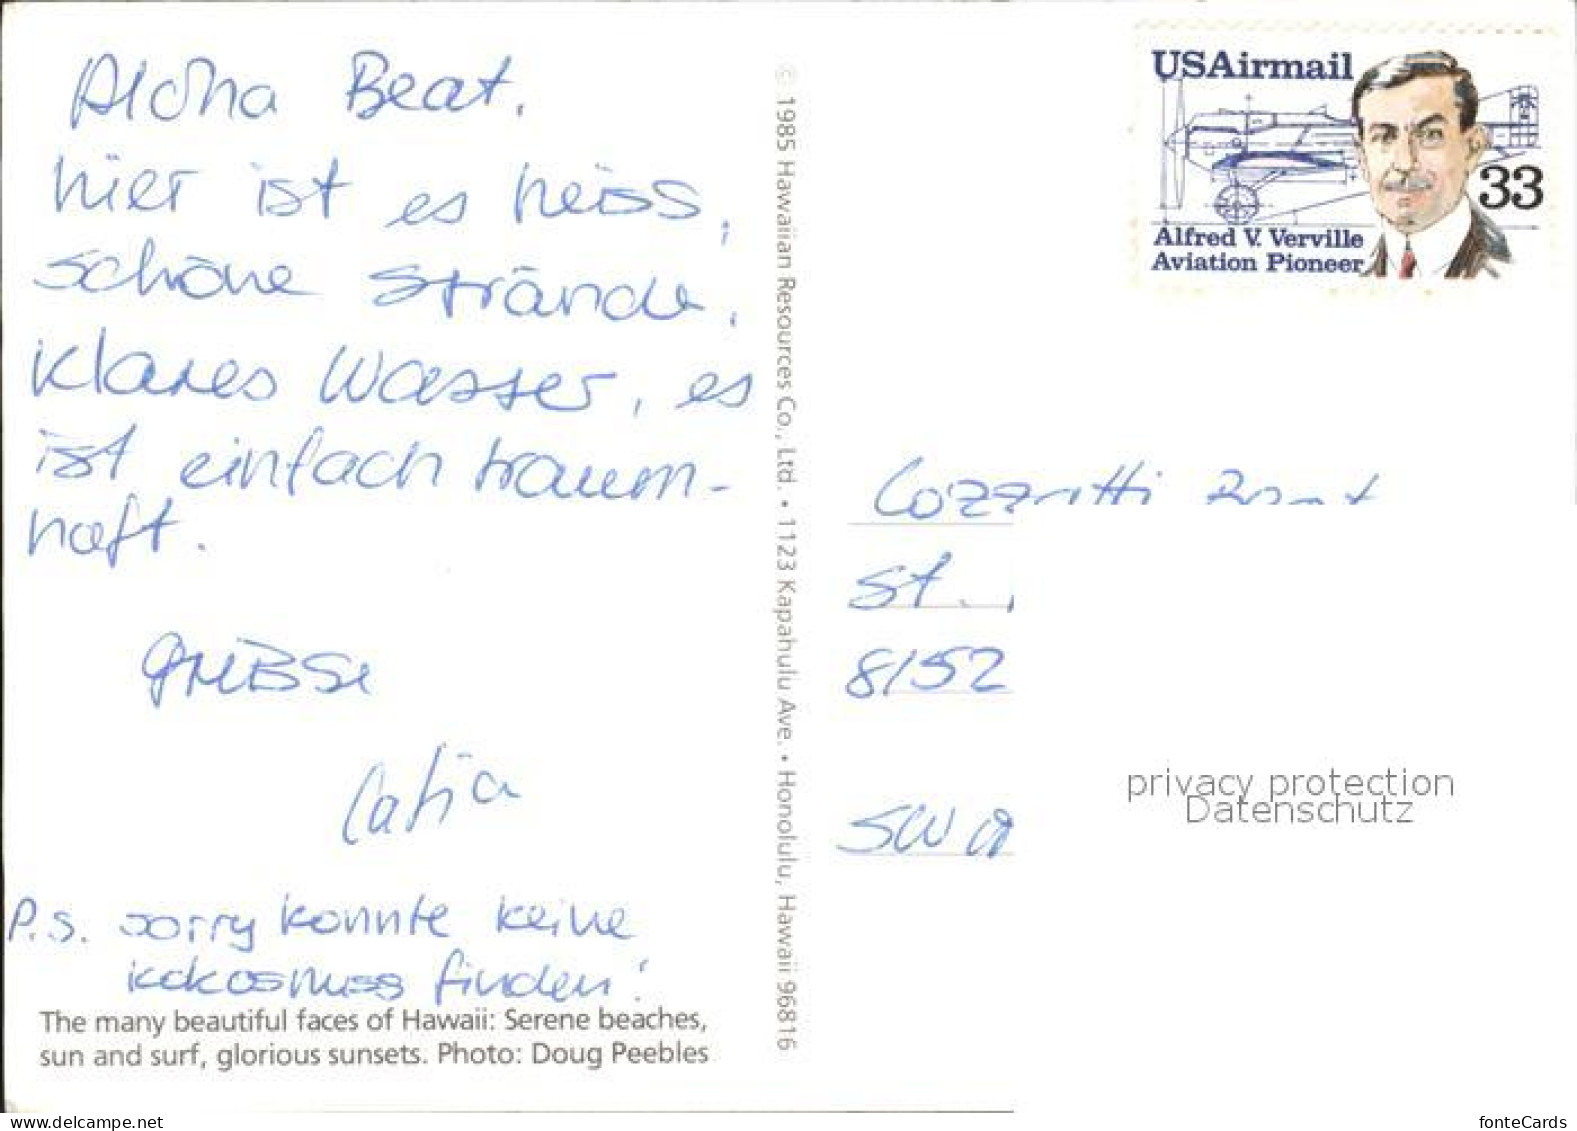 Aloha Beat,
hier ist es heiss,
schöne Strände,
klares Wasser, es
ist einfach traum-
haft.
Grüsse
Catia
P.S. sorry konnte keine
kokosnuss finden!
The many beautiful faces of Hawaii: Serene beaches,
sun and surf, glorious sunsets. Photo: Doug Peebles
© 1985 Hawaiian Resources Co., Ltd. • 1123 Kapahulu Ave. • Honolulu, Hawaii 96816
USAirmail
33
Alfred V. Verville
Aviation Pioneer
St.
8152
privacy protection
Datenschutz
www.delcampe.net
fonteCards